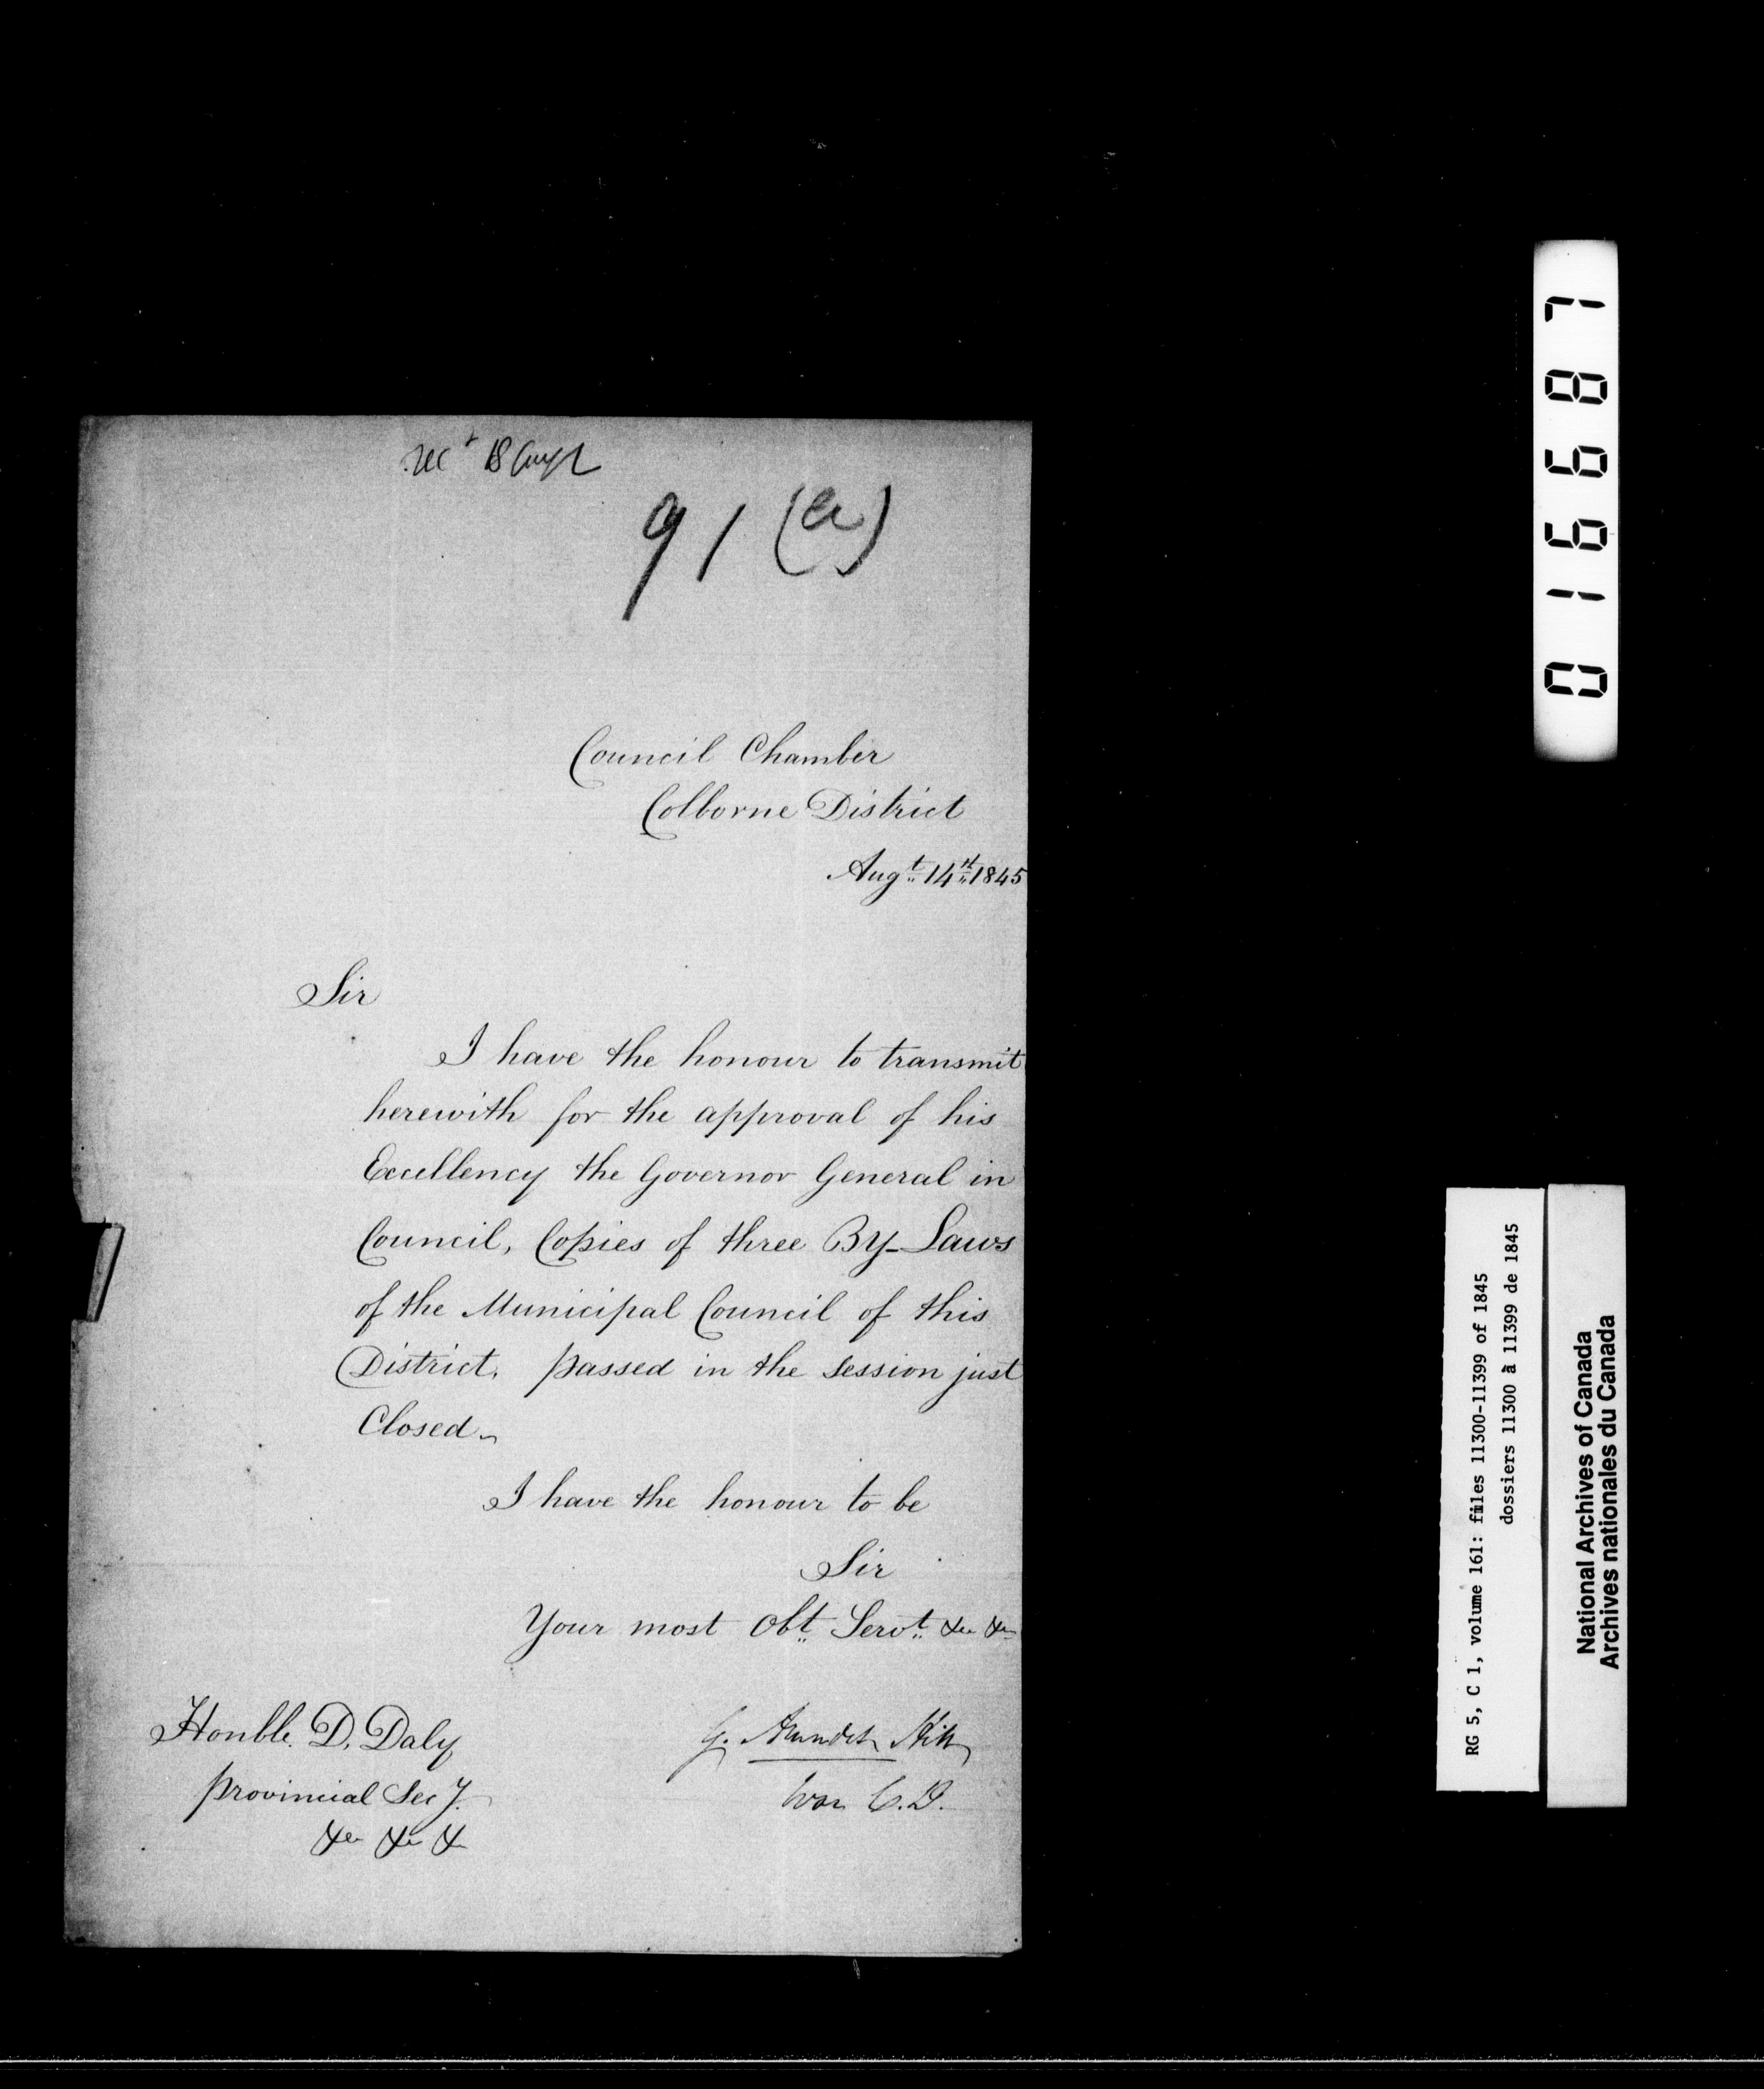 rec^d 18 Augt
91 (a)
Council Chamber
Colborne District
Augt. 14th 1845
Sir
I have the honour to transmit
herewith for the approval of his
Excellency the Governor General in
Council, Copies of three By-Laws
of the Municipal Council of this
District, passed in the session just
Closed
I have the honour to be
Sir
Your most Obt. Servt. &c &c
Honble. D. Daly
provincial Secy.
&c &c &c
G. Arundel Hill
C.D.
016687
RG 5, C 1, volume 161: files 11300-11399 of 1845
dossiers 11300 à 11399 de 1845
National Archives of Canada
Archives nationales du Canada